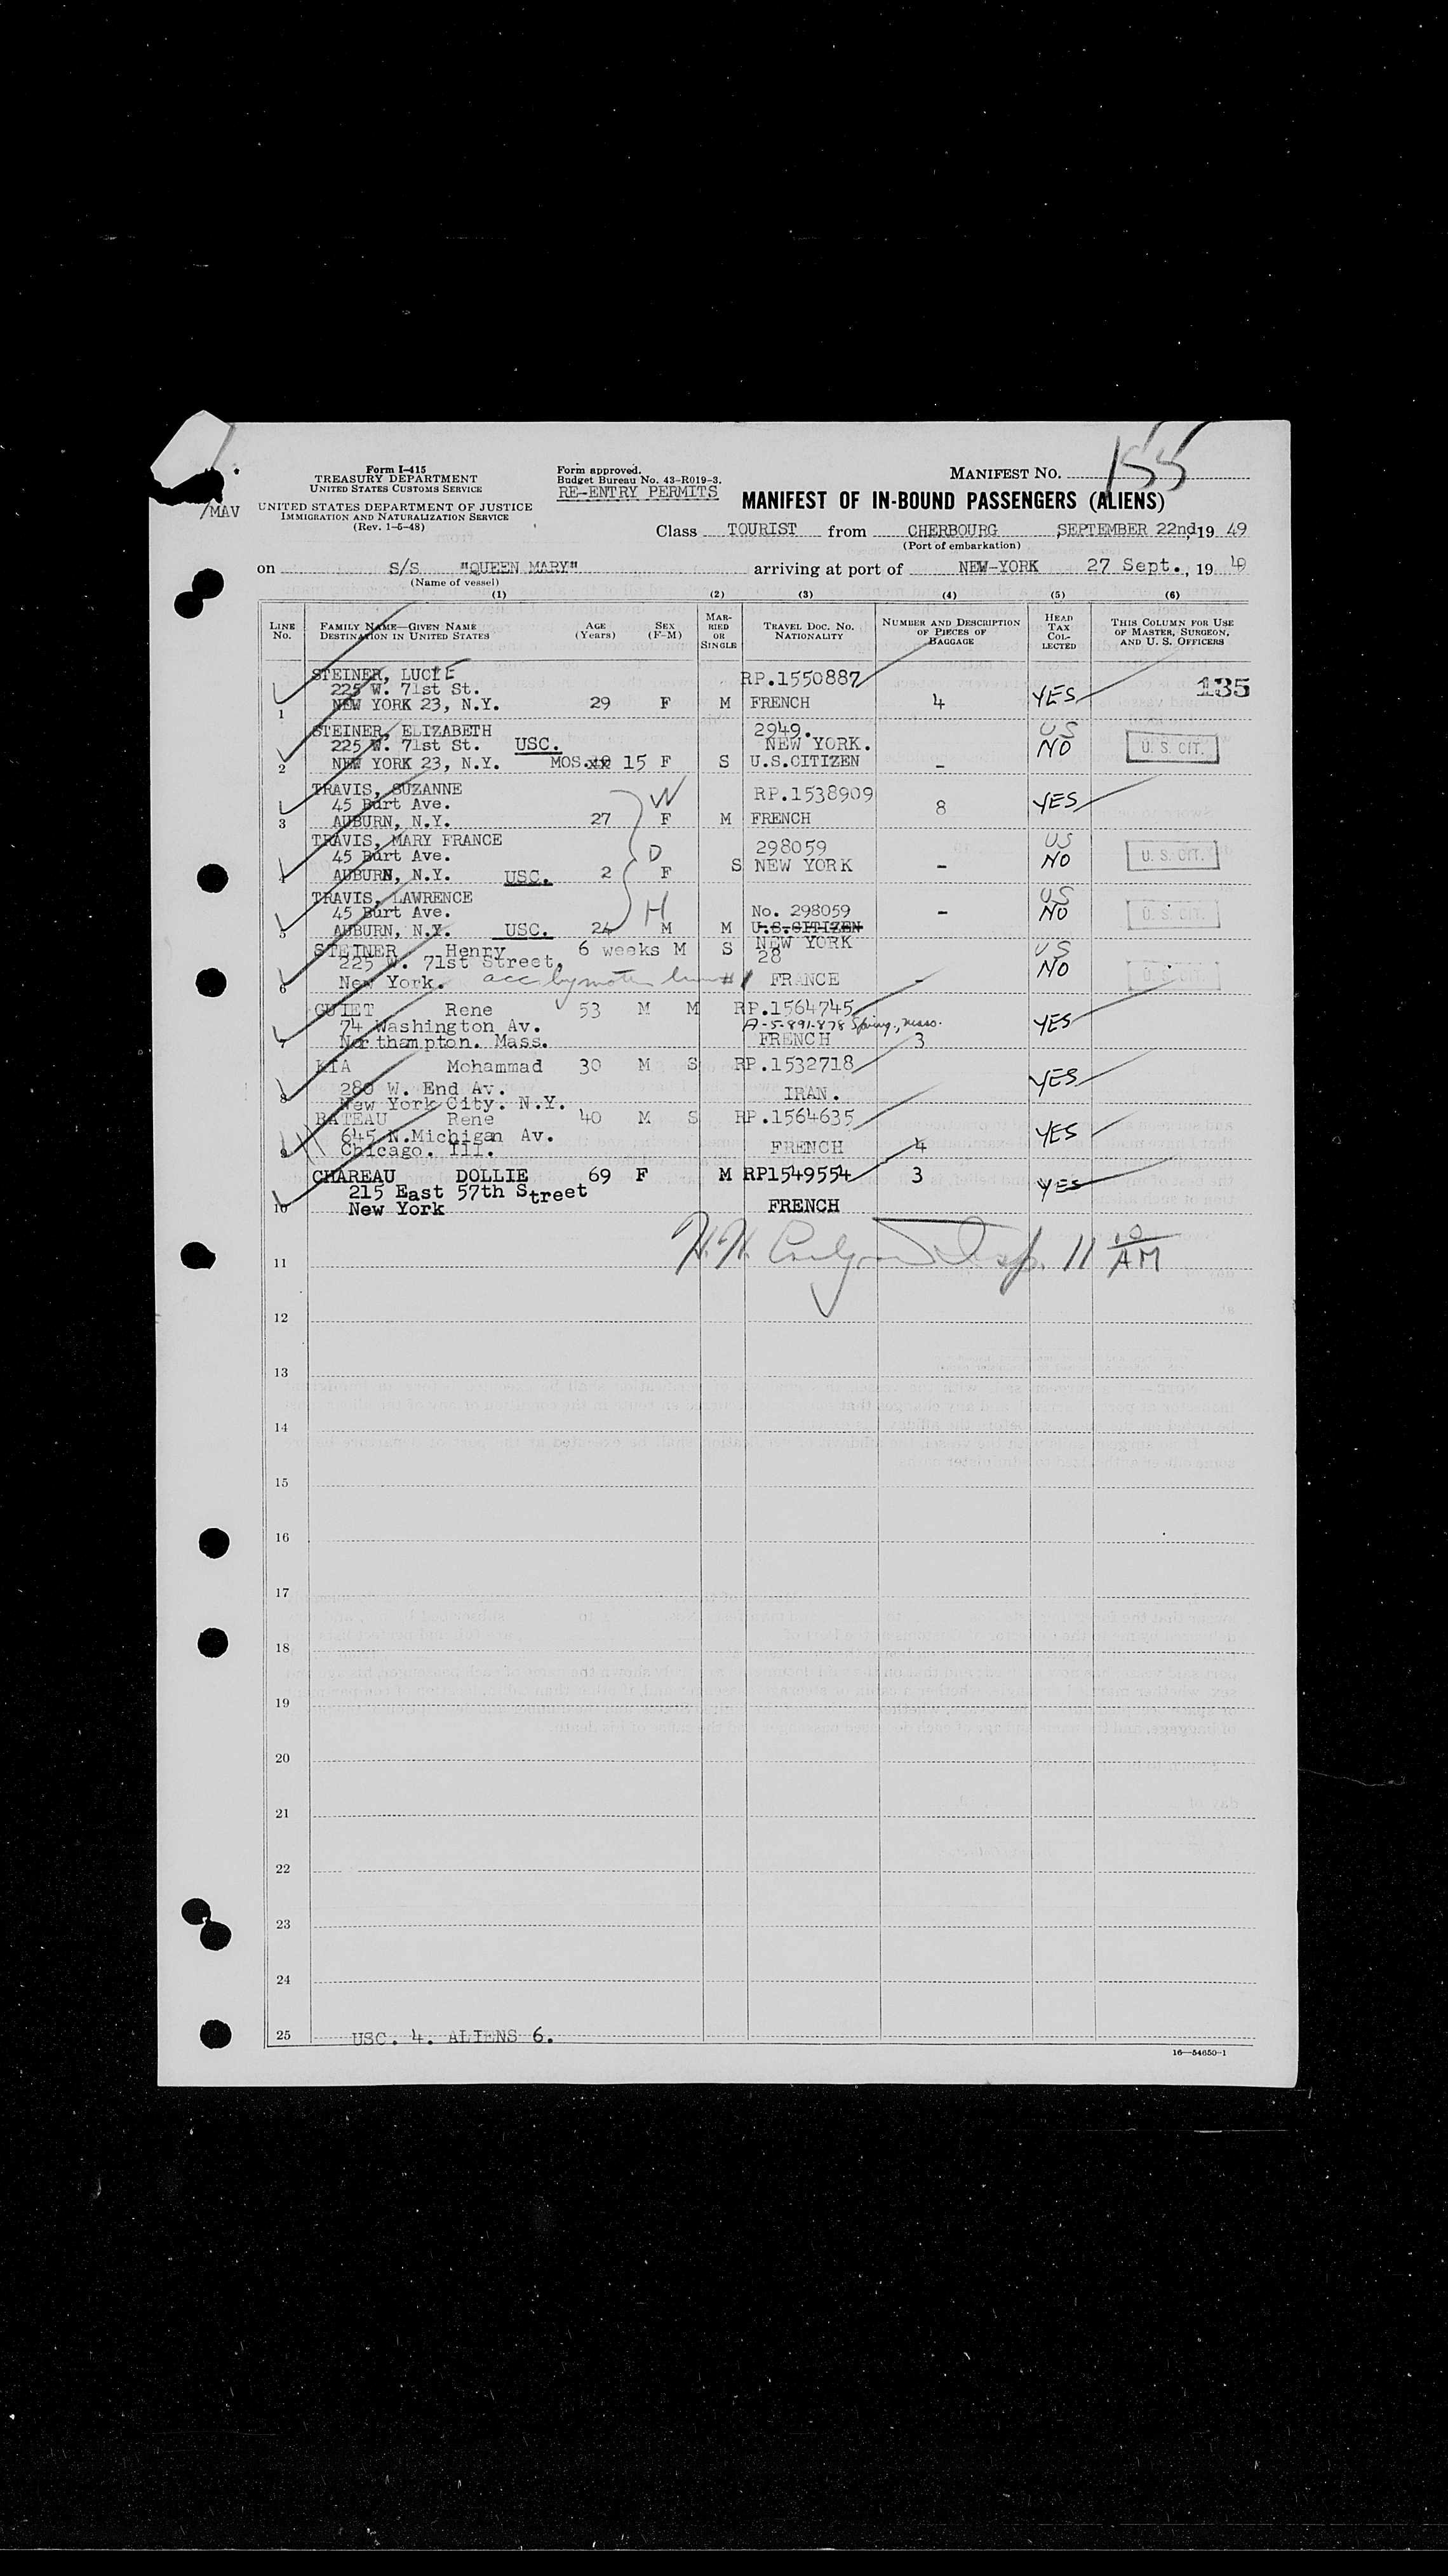 Form I-415
TREASURY DEPARTMENT
UNITED STATES CUSTOMS SERVICE
UNITED STATES DEPARTMENT OF JUSTICE
IMMIGRATION AND NATURALIZATION SERVICE
(Rev. 1-5-48)
/MAV
Form approved.
Budget Bureau No. 43-R019-3.
RE-ENTRY PERMITS
MANIFEST NO. 155
MANIFEST OF IN-BOUND PASSENGERS (ALIENS)
Class TOURIST from CHERBOURG, SEPTEMBER 22nd, 19 49
(Port of embarkation)
on S/S "QUEEN MARY" arriving at port of NEW-YORK 27 Sept., 19 49
(Name of vessel)
(1) (2) (3) (4) (5) (6)
LINE NO. FAMILY NAME—GIVEN NAME DESTINATION IN UNITED STATES AGE (Years) SEX (F-M) MARRIED OR SINGLE TRAVEL DOC. NO. NATIONALITY NUMBER AND DESCRIPTION OF PIECES OF BAGGAGE HEAD TAX COLLECTED THIS COLUMN FOR USE OF MASTER, SURGEON, AND U. S. OFFICERS
STEINER, LUCIE RP.1550887
225 W. 71st St. 135
1 NEW YORK 23, N.Y. 29 F M FRENCH 4 YES
STEINER, ELIZABETH 2949. US
225 W. 71st St. USC. NEW YORK. NO U. S. CIT.
2 NEW YORK 23, N.Y. MOS. xx 15 F S U.S.CITIZEN -
TRAVIS, SUZANNE W RP.1538909
45 Burt Ave. 8 YES
3 AUBURN, N.Y. 27 F M FRENCH
TRAVIS, MARY FRANCE 298059 US
45 Burt Ave. D NO U. S. CIT.
4 AUBURN, N.Y. USC. 2 F S NEW YORK -
TRAVIS, LAWRENCE US
45 Burt Ave. H No. 298059 - NO U. S. CIT.
5 AUBURN, N.Y. USC. 24 M M U.S.CITIZEN
STEINER Henry 6 weeks M S NEW YORK US
225 W. 71st Street, 28 NO
6 New York. acc by mother line #1 FRANCE - U. S. CIT.
GUIET Rene 53 M M RP.1564745
74 Washington Av. A-5-891-878 Spring., Mass. YES
7 Northampton. Mass. FRENCH 3
KIA Mohammad 30 M S RP.1532718
280 W. End Av. IRAN. YES
8 New York City. N.Y.
BATEAU Rene 40 M S RP.1564635
645 N.Michigan Av. YES
9 Chicago. Ill. FRENCH 4
CHAREAU DOLLIE 69 F M RP1549554 3 YES
215 East 57th Street
10 New York FRENCH
H.H. Insp. 11 10 AM
11
12
13
14
15
16
17
18
19
20
21
22
23
24
25 USC. 4. ALIENS 6.
16—54650-1